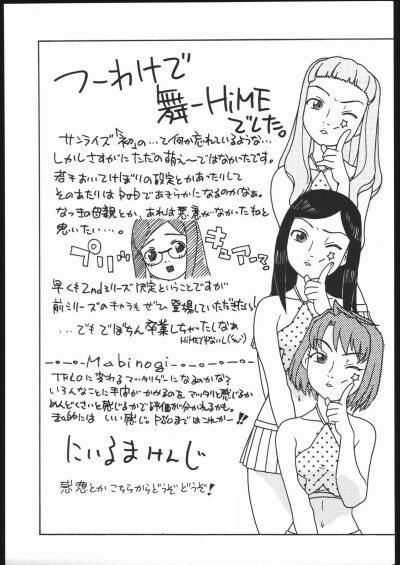 つーわけで
舞-HiME
でした。
サンライズ「初」の…て何か忘れているような…
しかしさすがにただの萌え〜ではなかったです。
君をおいてけぼりの設定とかあったりして
そのあたりはDVDであきらかになるのかなぁ。
なつきの母親とか、あれは悪意がなかったねと
思いたい…。
プリ
キュアっ?
早くも2ndシリーズ決定ということですが
前シリーズのキャラもぜひ登場していただきたいっ
…でもでぼちん卒業しちゃったしなぁ
HiMEでゎないし
Mabinogi
に変わるマッタリゲーになるのかな?
いろんなことに手間がかかるのを マッタリと感じるか
めんどくさいと感じるかで評価が分かれるかも。
まぁ的には いい感じ。PSOまではこれかー!!
にいるまけんじ
感想とか こちらからどうぞどうぞ!